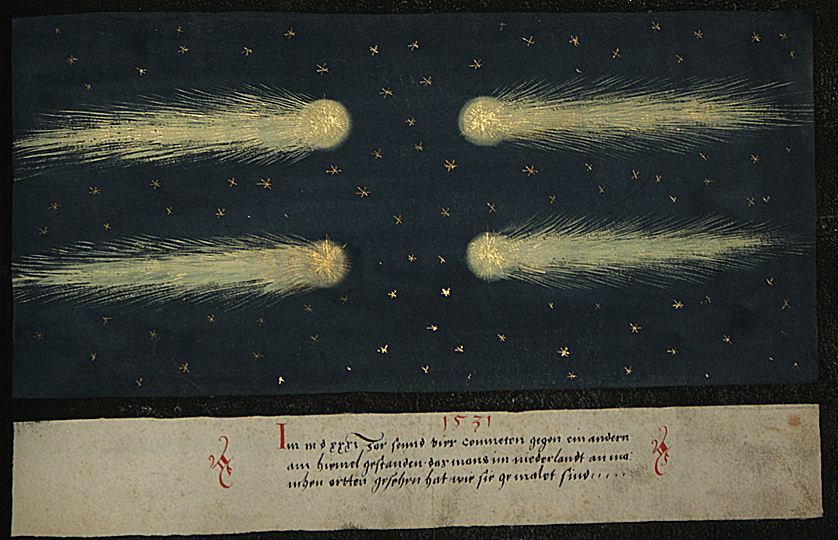 1531
Im m d xxxi Jar sinnd vier commeten gegen ein andern
am himel gestanden. das mans im niederlandt an ma
nchen ortten gesehen hat wie sie gemalet sind.....